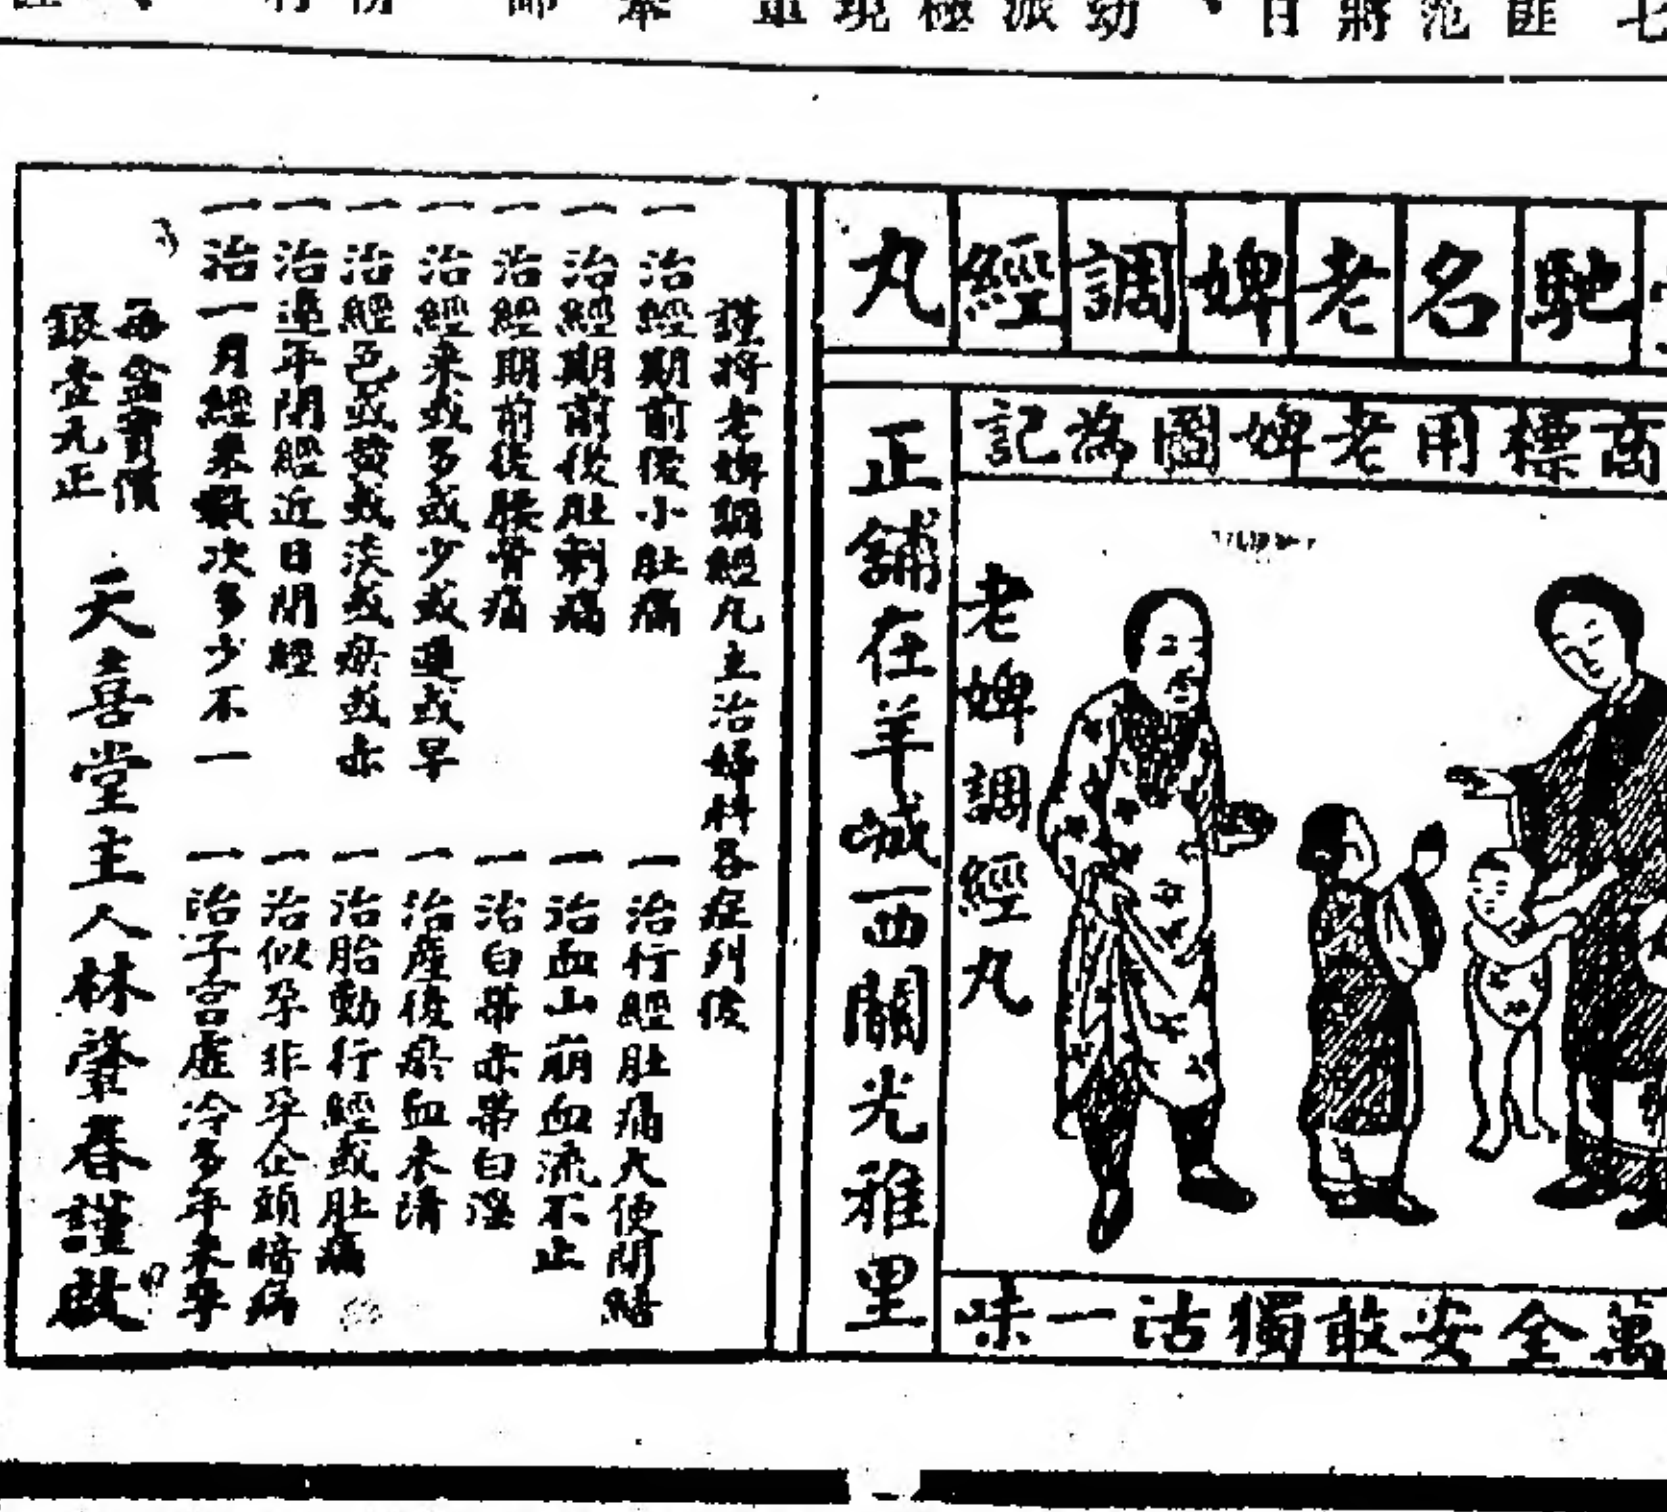 馳名老婢調經丸
商標用老婢圖為記
老婢調經丸
萬全安敢獨沽一味
正舖在羊城西關光雅里
謹將老婢調經丸主治婦科各症列後
一治經期前後小肚痛
一治經期前後肚刺痛
一治經期前後腰骨痛
一治經來或多或少或遲或早
一治經色或黃或淡或瘀或赤
一治連年閉經近日閉經
一治一月經來數次多少不一
一治行經肚痛大便閉結
一治血山崩血流不止
一治白帶赤帶白淫
一治產後瘀血未清
一治胎動行經或肚痛
一治似孕非孕企頭暗病
一治子宮虛冷多年未孕
每盒實價
銀壹元正
天喜堂主人林肇春謹啟